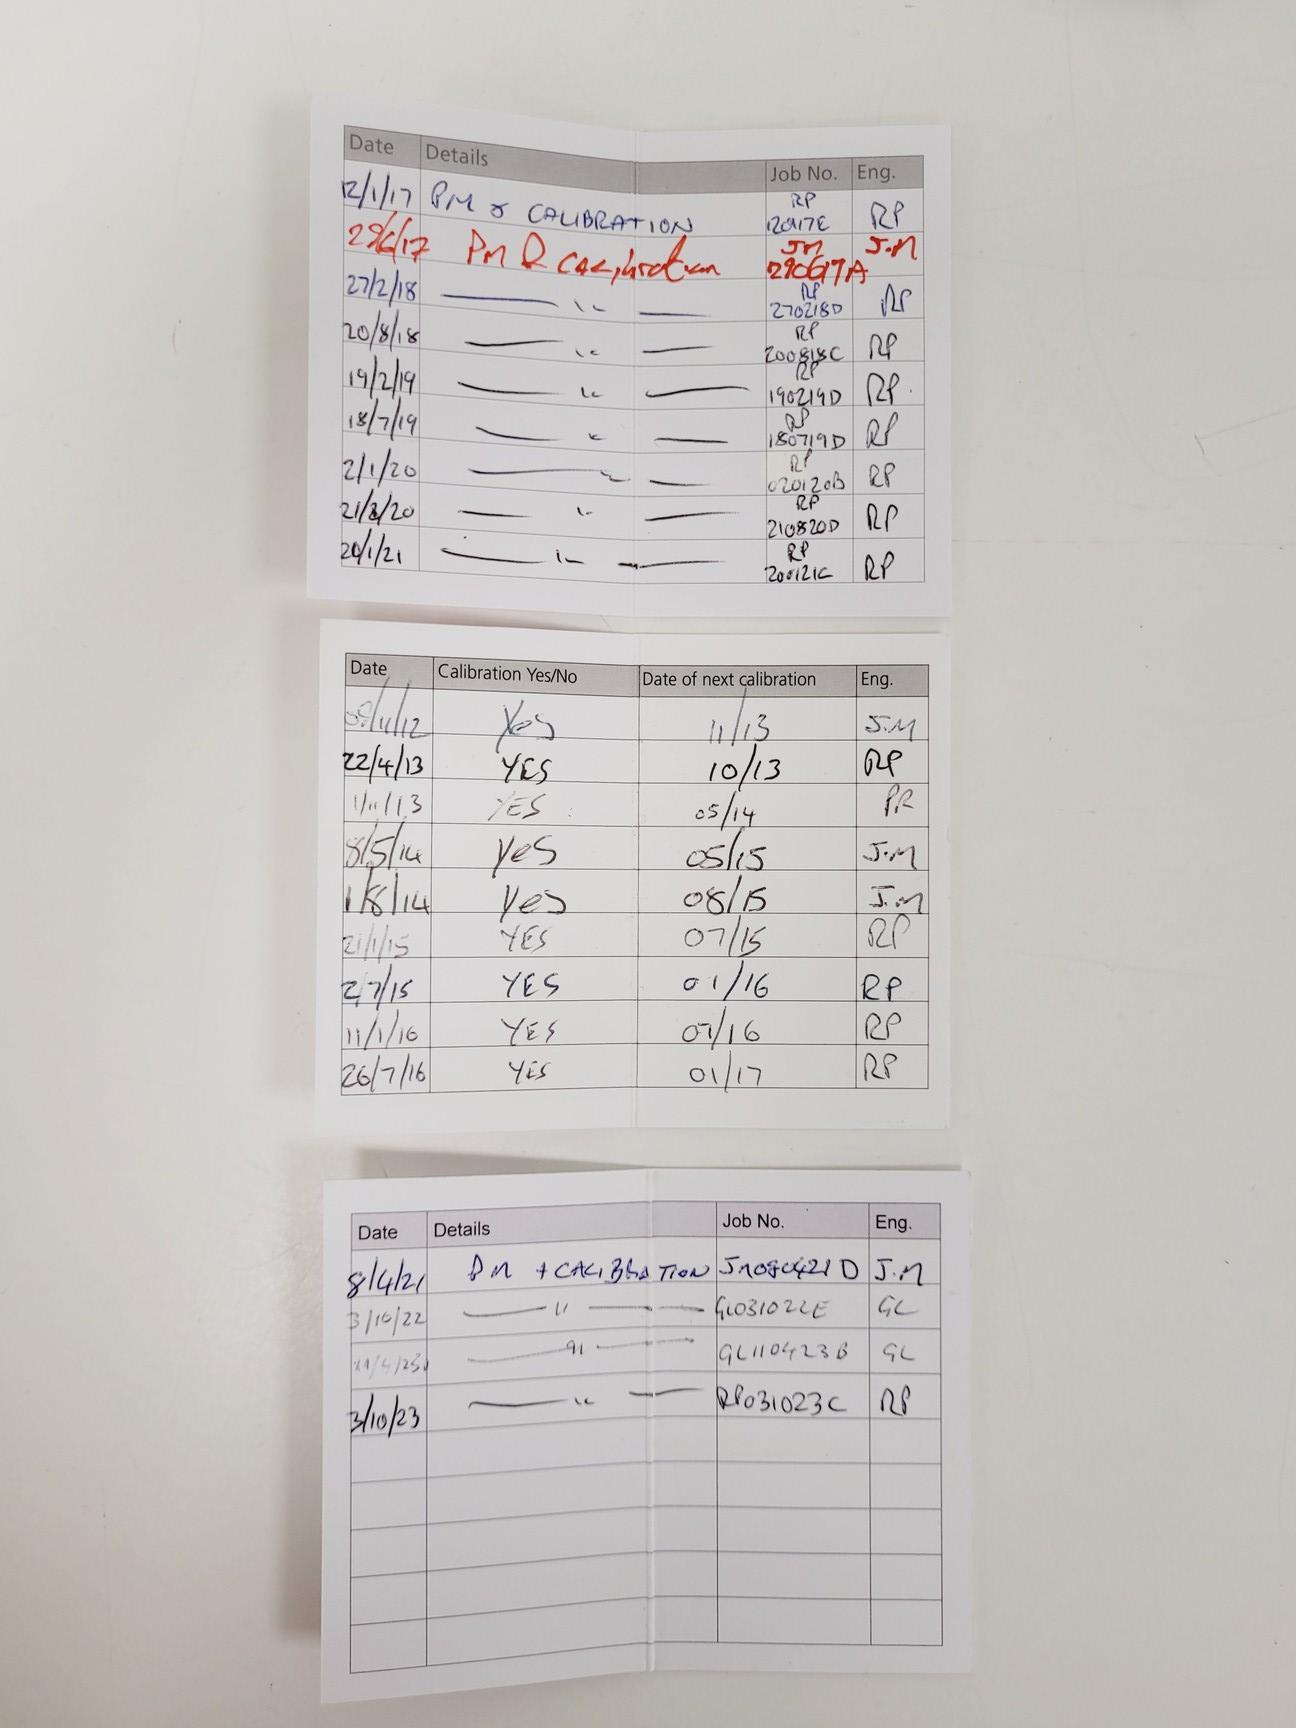 Date Details Job No. Eng.
12/1/17 PM & CALIBRATION RP 120117E RP
29/6/17 PM & Calibration JM 290617A J.M
27/2/18 — " — RP 270218D RP
20/8/18 — " — RP 200818C RP
19/2/19 — " — RP 190219D RP
18/7/19 — " — RP 180719D RP
2/1/20 — " — RP 020120B RP
21/8/20 — " — RP 210820D RP
20/1/21 — " — RP 200121C RP
Date Calibration Yes/No Date of next calibration Eng.
08/11/12 Yes 11/13 J.M
22/4/13 YES 10/13 RP
1/11/13 YES 05/14 PR
8/5/14 Yes 05/15 J.M
1/8/14 Yes 08/15 J.M
21/1/15 YES 07/15 RP
2/7/15 YES 01/16 RP
11/1/16 YES 07/16 RP
26/7/16 YES 01/17 RP
Date Details Job No. Eng.
8/4/21 PM + CALIBRATION JM080421D J.M
3/10/22 — " — GL031022E GL
— " — GL110423B GL
3/10/23 — " — RP031023C RP